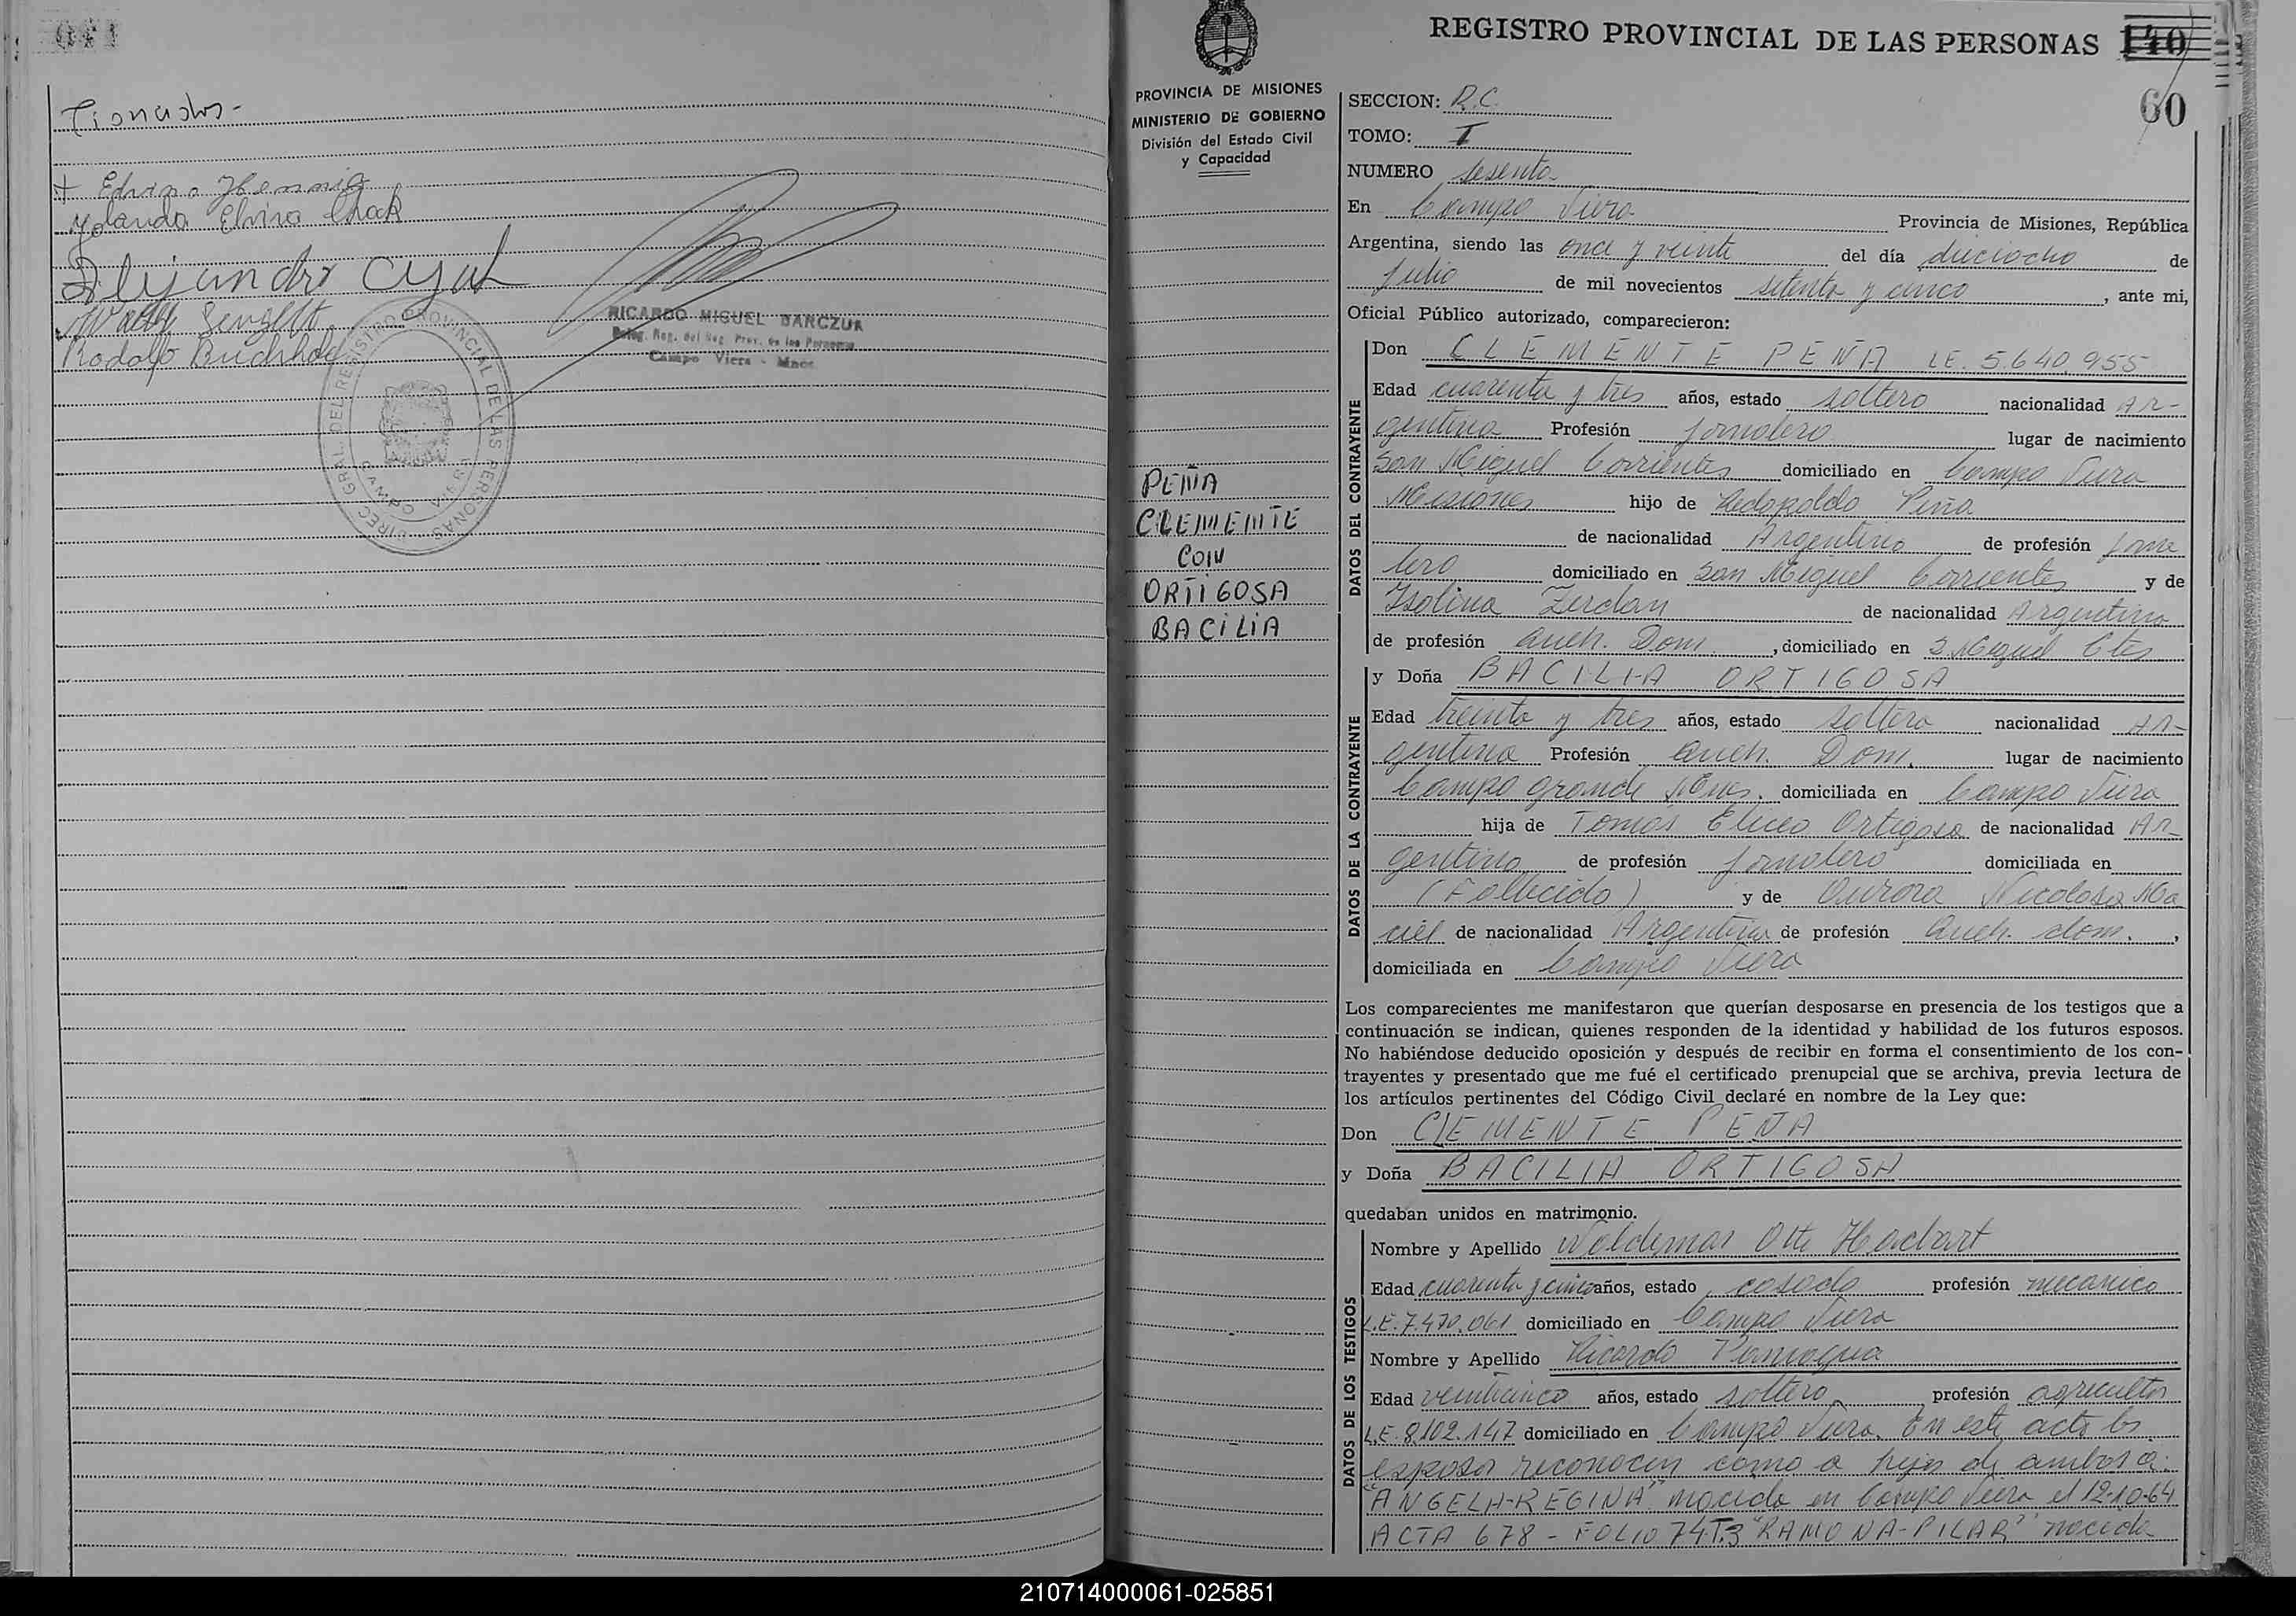 cionados-
+ Edvino Hennig
Yolanda Elvira Chock
Alejandro
Rodolfo
RICARDO MIGUEL BARCZUK
Deleg. Reg. del Reg. Prov. de las Personas
Campo Viera - Mnes.
DIREC. GRAL. DEL REGISTRO PROVINCIAL DE LAS PERSONAS
CAMPO VIERA
PROVINCIA DE MISIONES
MINISTERIO DE GOBIERNO
División del Estado Civil
y Capacidad
PEÑA
CLEMENTE
CON
ORTIGOSA
BACILIA
REGISTRO PROVINCIAL DE LAS PERSONAS 140
60
SECCION: R.C.
TOMO: I
NUMERO sesenta
En Campo Viera Provincia de Misiones, República
Argentina, siendo las once y veinte del día dieciocho de
Julio de mil novecientos setenta y cinco, ante mi,
Oficial Público autorizado, comparecieron:
DATOS DEL CONTRAYENTE
Don CLEMENTE PEÑA LE. 5.640.955
Edad cuarenta y tres años, estado soltero nacionalidad Ar-
gentina Profesión Jornalero lugar de nacimiento
San Miguel Corrientes domiciliado en Campo Viera
Misiones hijo de Peña
de nacionalidad Argentino de profesión Jorna
lero domiciliado en San Miguel Corrientes y de
Isolina Zerdan de nacionalidad Argentina
de profesión Queh. Dom., domiciliado en S. Miguel Ctes
DATOS DE LA CONTRAYENTE
y Doña BACILIA ORTIGOSA
Edad treinta y tres años, estado soltera nacionalidad Ar-
gentina Profesión Queh. Dom. lugar de nacimiento
Campo Grande Mnes. domiciliada en Campo Viera
hija de Tomás Eliceo Ortigosa de nacionalidad Ar-
gentino de profesión Jornalero domiciliada en
(Fallecido) y de Aurora Nicolasa Ma
ciel de nacionalidad Argentina de profesión Queh. dom.,
domiciliada en Campo Viera
Los comparecientes me manifestaron que querían desposarse en presencia de los testigos que a
continuación se indican, quienes responden de la identidad y habilidad de los futuros esposos.
No habiéndose deducido oposición y después de recibir en forma el consentimiento de los con-
trayentes y presentado que me fué el certificado prenupcial que se archiva, previa lectura de
los artículos pertinentes del Código Civil declaré en nombre de la Ley que:
Don CLEMENTE PEÑA
y Doña BACILIA ORTIGOSA
quedaban unidos en matrimonio.
DATOS DE LOS TESTIGOS
Nombre y Apellido Woldemar Otto Hachart
Edad cuarenta y cinco años, estado casado profesión mecanico
L.E. 7.470.061 domiciliado en Campo Viera
Nombre y Apellido Ricardo Paniagua
Edad veinticinco años, estado soltero profesión agricultor
L.E. 8.102.147 domiciliado en Campo Viera. En este acto los
esposos reconocen como a hijos de ambos a:
"ANGELA-REGINA" nacida en Campo Viera el 12-10-64
ACTA 678 - FOLIO 74 T.3 "RAMONA-PILAR" nacida
210714000061-025851